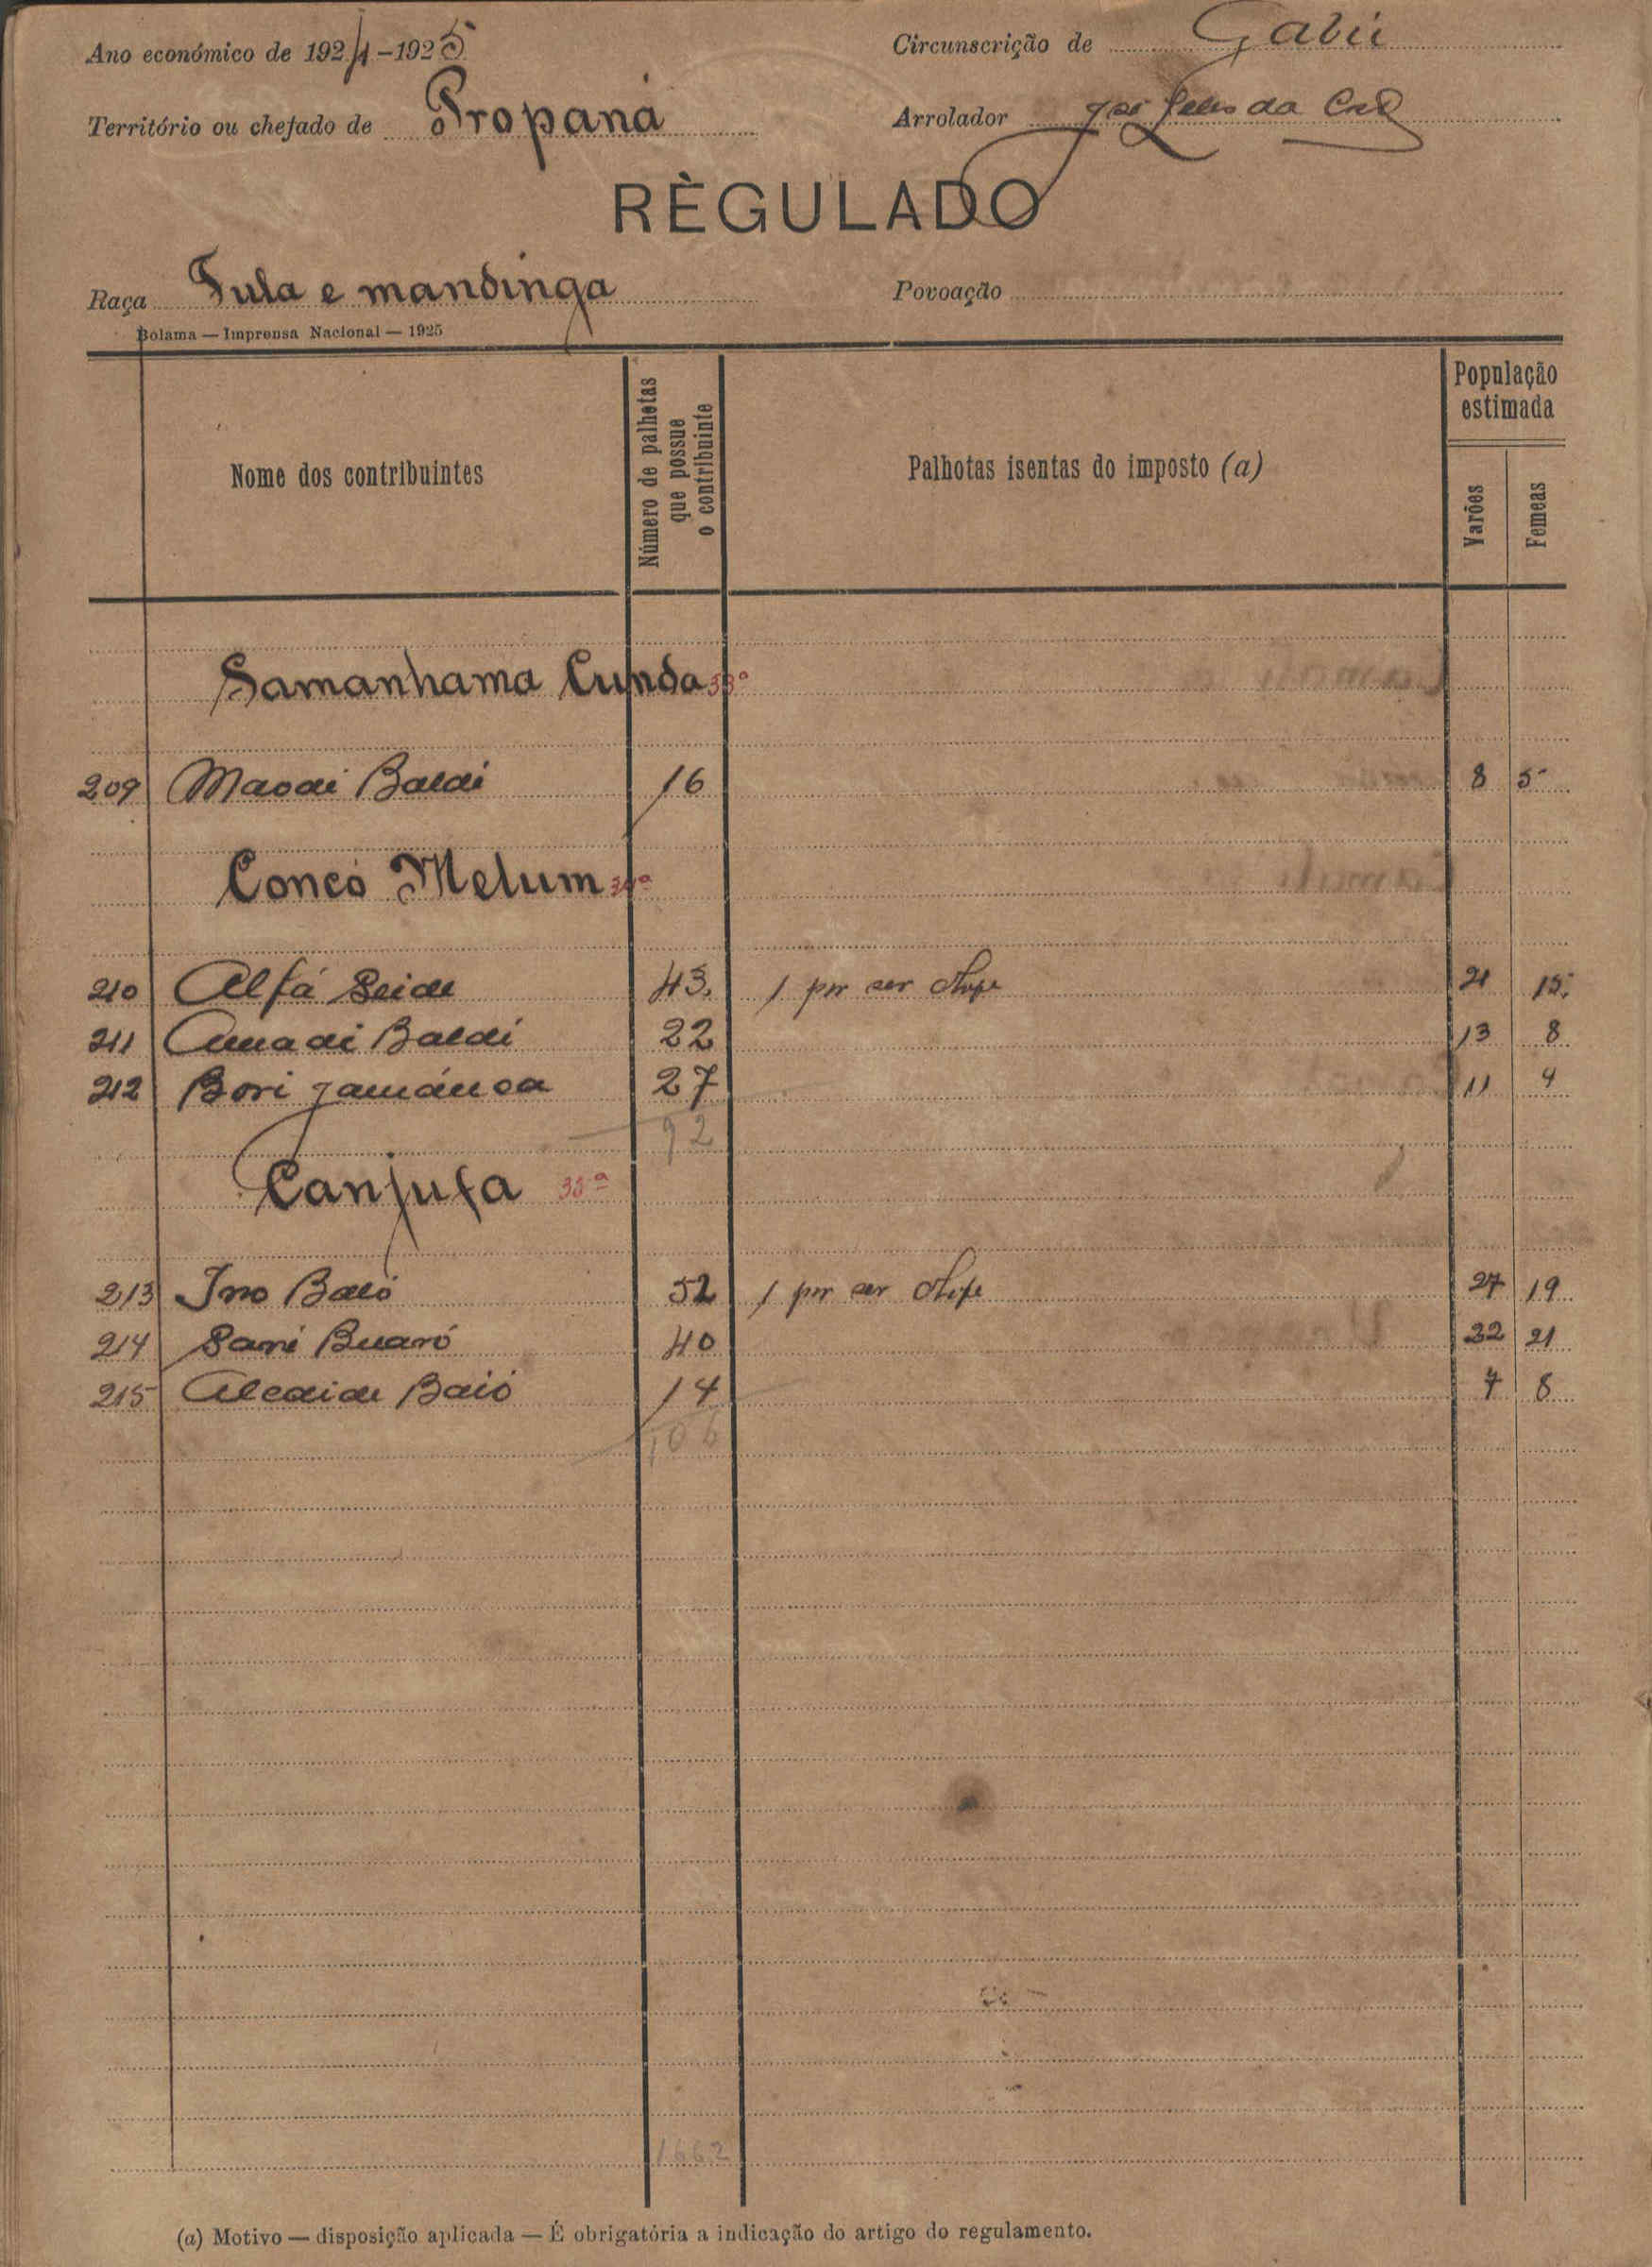 Ano económico de 1924-1925 Circunscrição de Gabú
Território ou chefado de Propaná Arrolador da
RÈGULADO
Raça Fula e mandinga Povoação
Bolama — Imprensa Nacional — 1925
Nome dos contribuintes
Número de palhotas que possue o contribuinte
Palhotas isentas do imposto (a)
População estimada
Varões
Femeas
Samanhama Cunda 33ª
209 Maodi Baldi 16 8 5
Concó Melum 34ª
210 Alfá Seide 43 1 por ser chefe 21 15
211 Amadi Baldi 22 13 8
212 Bori Jamánca 27 11 4
92
Canjufa
213 Ino Baió 52 1 por ser chefe 27 19
214 Sani Buaró 40 22 21
215 Alcaide Baió 14 7 8
106
1662
(a) Motivo — disposição aplicada — É obrigatória a indicação do artigo do regulamento.